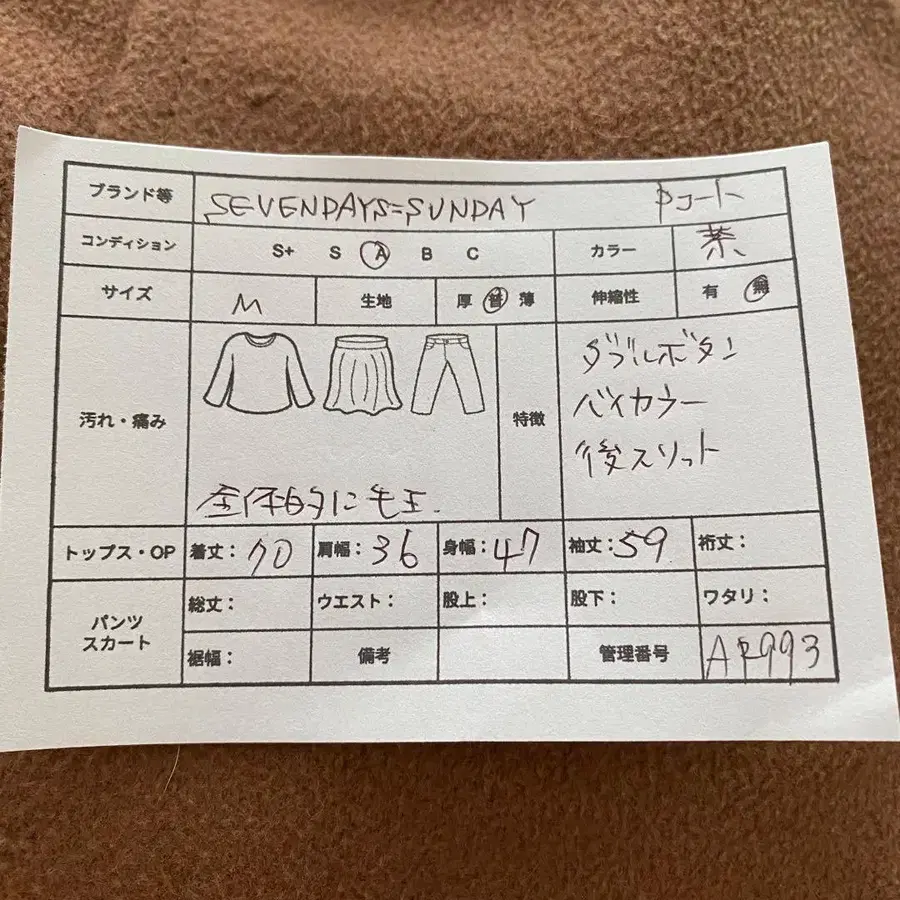 ブランド等 SEVENDAYS=SUNDAY Pコート
コンディション S+ S A B C カラー 茶
サイズ M 生地 厚 普 薄 伸縮性 有 無
汚れ・痛み 全体的に毛玉. 特徴 ダブルボタン
バイカラー
後スリット
トップス・OP 着丈:70 肩幅:36 身幅:47 袖丈:59 裄丈:
パンツ
スカート
総丈: ウエスト: 股上: 股下: ワタリ:
裾幅: 備考 管理番号 AR993